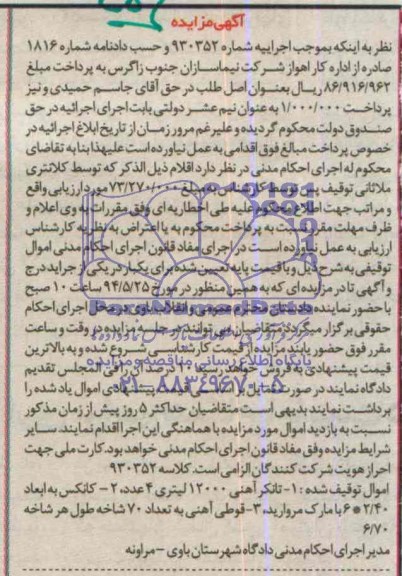 آگهی مزایده
نظر به اینکه بموجب اجراییه شماره ۹۳۰۳۵۲ و حسب دادنامه شماره ۱۸۱۶
صادره از اداره کار اهواز شرکت نیماسازان جنوب زاگرس به پرداخت مبلغ
۸۶/۹۱۶/۹۶۲ ریال بعنوان اصل طلب در حق آقای جاسم حمیدی و نیز
پرداخت ۱/۰۰۰/۰۰۰ به عنوان نیم عشر دولتی بابت اجرای اجرائیه در حق
صندوق دولت محکوم گردیده و علیرغم مرور زمان از تاریخ ابلاغ اجرائیه در
خصوص پرداخت مبالغ فوق اقدامی به عمل نیاورده است علیهذا بنا به تقاضای
محکوم له اجرای احکام مدنی در نظر دارد اقلام ذیل الذکر که توسط کلانتری
ملاثانی توقیف پس توسط کارشناس به مبلغ ۷۳/۲۷۰/۰۰۰ مورد ارزیابی واقع
و مراتب جهت اطلاع محکوم علیه طی اخطاریه ای وفق مقررات به وی اعلام و
ظرف مهلت مقرر نسبت به پرداخت محکوم به یا اعتراض به نظریه کارشناس
ارزیابی به عمل نیاورده است در اجرای مفاد قانون اجرای احکام مدنی اموال
توقیفی به شرح ذیل و با قیمت پایه تعیین شده برای یکبار در یکی از جراید درج
و آگهی تا در مزایده ای که به همین منظور در مورخ ۹۴/۵/۲۵ ساعت ۱۰ صبح
با حضور نماینده دادستان محترم عمومی و انقلاب باوی در محل اجرای احکام
حقوقی برگزار میگردد متقاضیان می توانند در جلسه مزایده در وقت و ساعت
مقرر فوق حضور یابند مزایده از قیمت کارشناسی شروع شده و به بالاترین
قیمت پیشنهادی به فروش خواهد رسید ۱۰ درصد آن را فی المجلس تقدیم
دادگاه نمایند در صورت قیمت پیشنهادی اموال یاد شده را
برداشت نمایند بدیهی است متقاضیان حداکثر ۵ روز پیش از زمان مذکور
نسبت به بازدید اموال مورد مزایده با هماهنگی این اجرا اقدام نمایند. سایر
شرایط مزایده وفق مفاد قانون اجرای احکام مدنی خواهد بود. کارت ملی جهت
احراز هویت شرکت کنندگان الزامی است. کلاسه ۹۳۰۳۵۲
اموال توقیف شده : ۱- تانکر آهنی ۱۲۰۰۰ لیتری ۴ عدد، ۲- کانکس به ابعاد
۲/۴۰ * ۶ با مارک مروارید، ۳- قوطی آهنی به تعداد ۷۰ شاخه طول هر شاخه
۶/۷۰
مدیر اجرای احکام مدنی دادگاه شهرستان باوی - مراونه
پایگاه اطلاع رسانی مناقصه و مزایده
۰۲۱-۸۸۳۴۹۶۷۰-۵